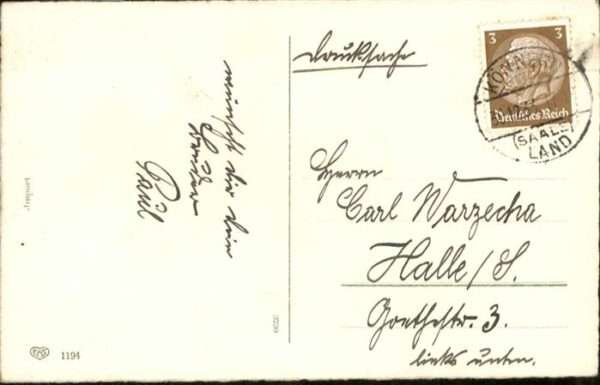 wünscht dir dein
Bruder
Paul
Drucksache
3 3
Deutsches Reich
KÖNN
(SAALE)
LAND
Herrn
Carl Warzecha
Halle/S.
Goethestr. 3.
links unten.
Import
1194